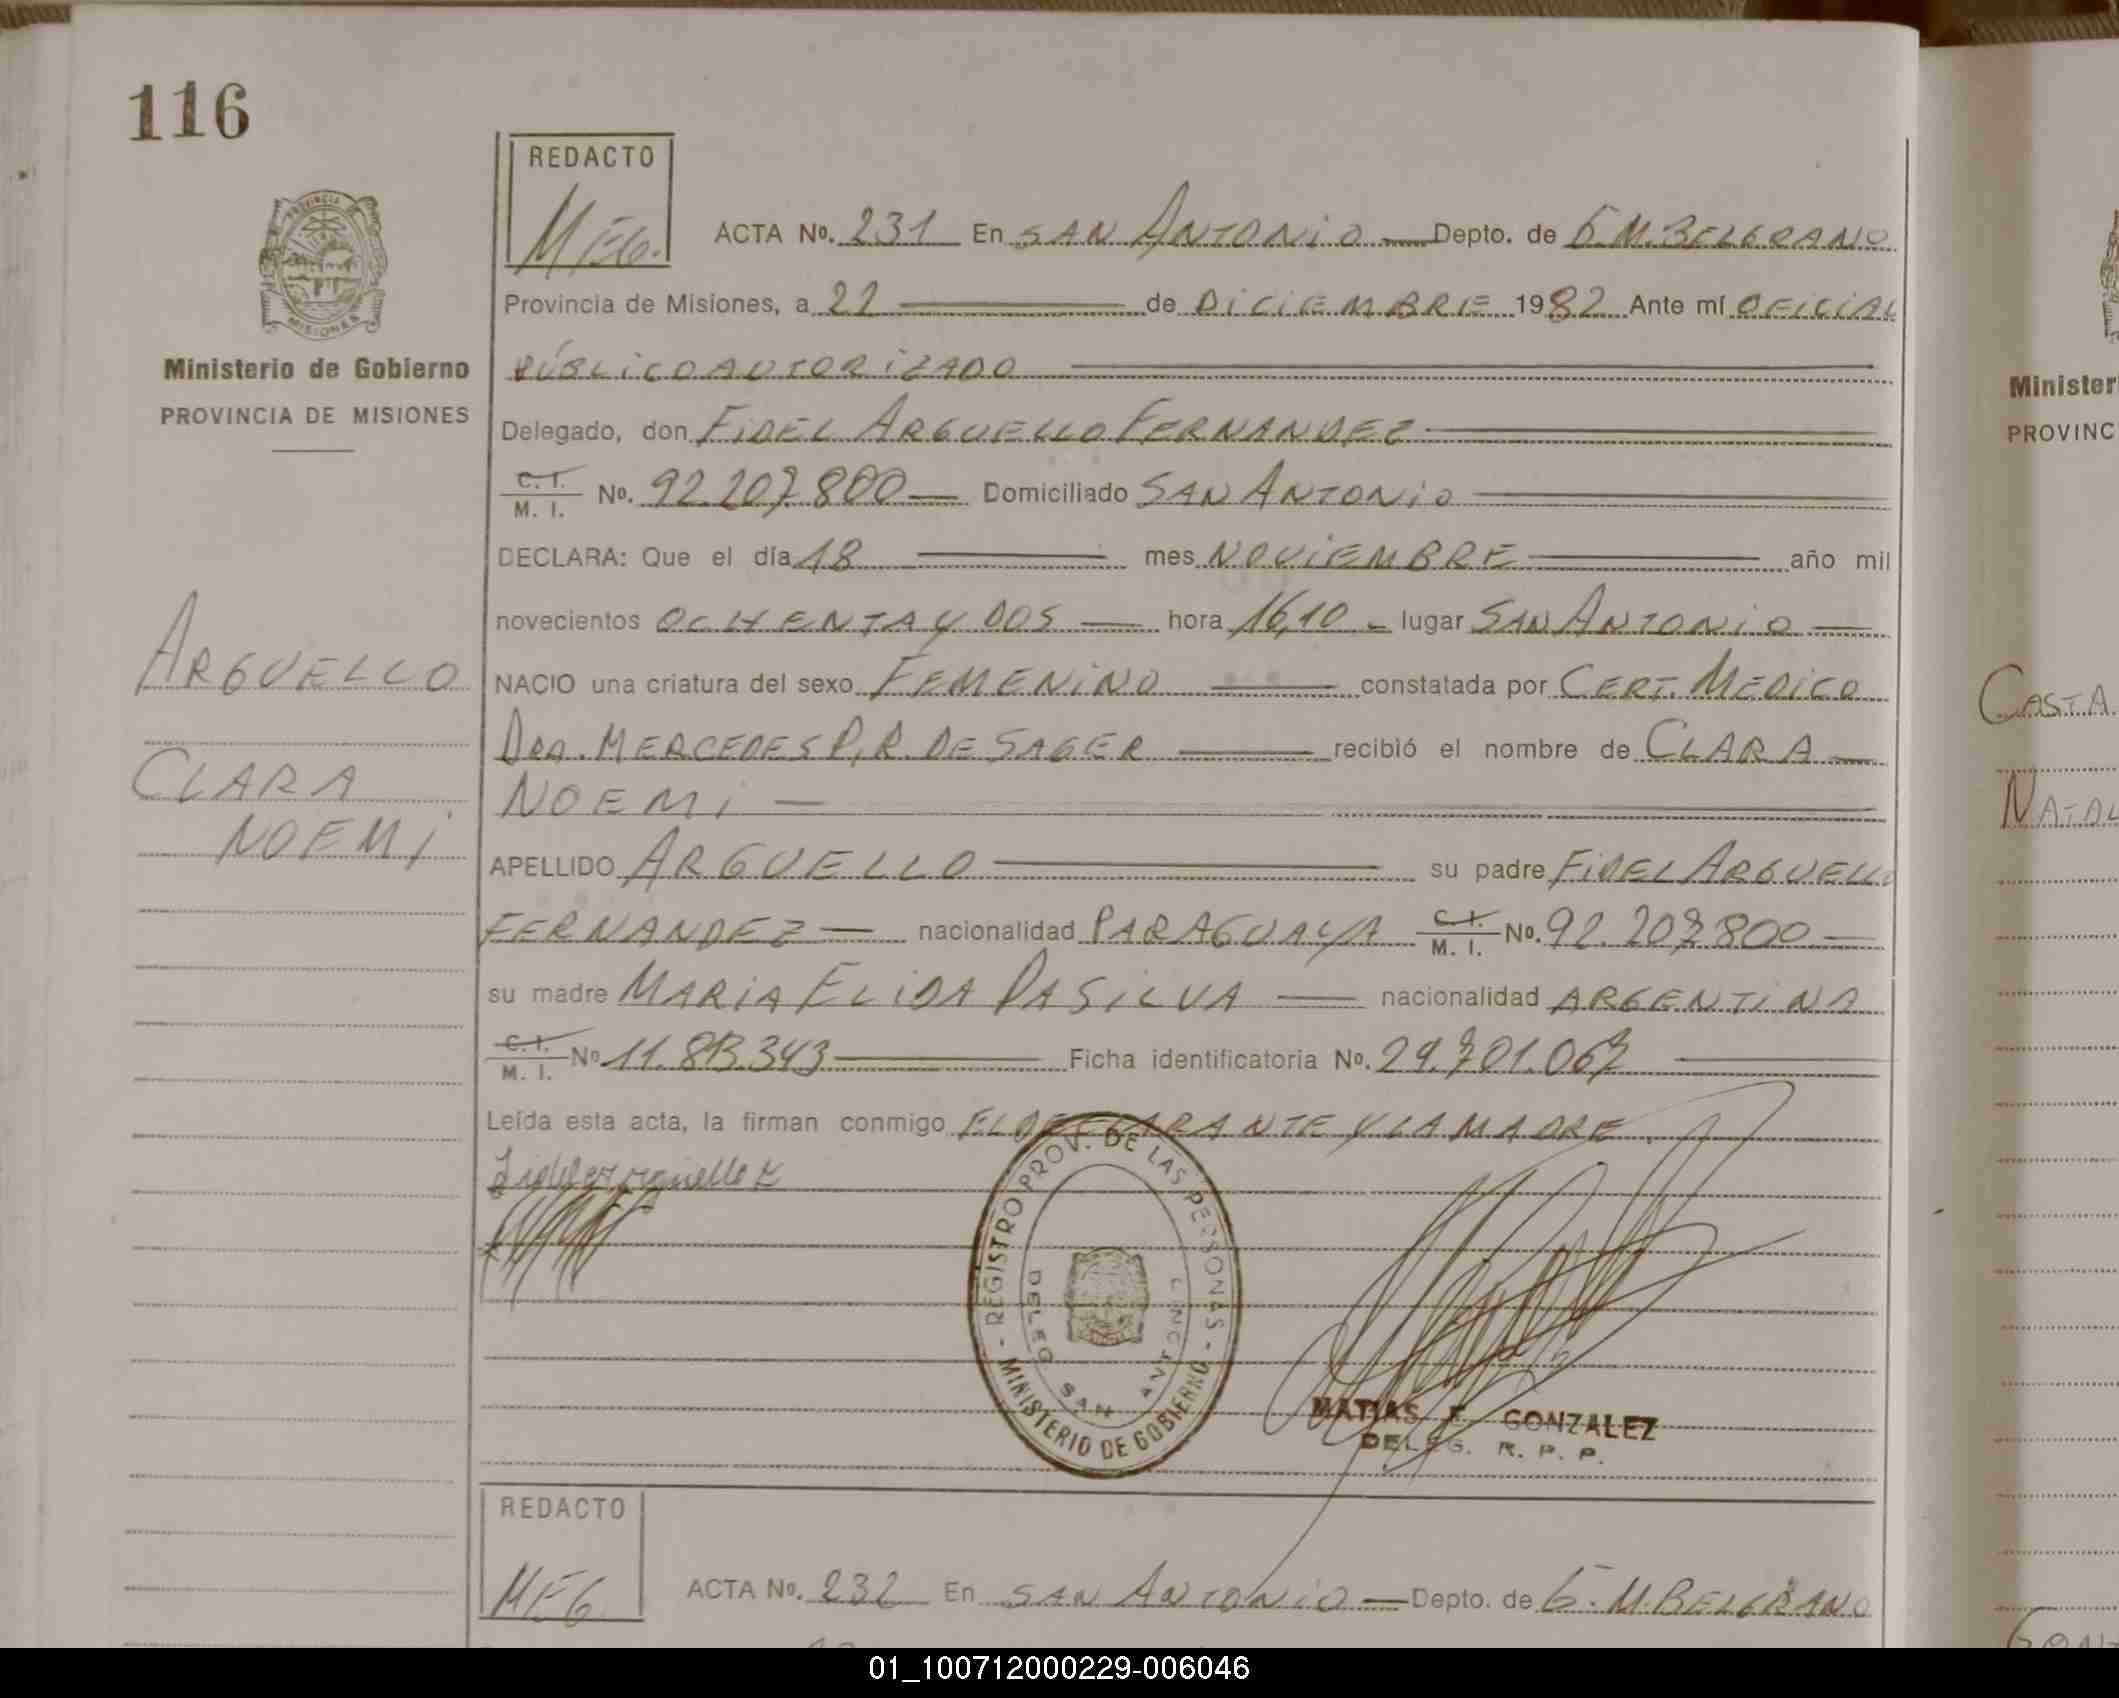 116
REDACTO
MEG.
ACTA No. 231 En SAN ANTONIO Depto. de G.M.BELGRANO
PROVINCIA DE
MISIONES
Provincia de Misiones, a 22 de DICIEMBRE 1982 Ante mí OFICIAL
Ministerio de Gobierno
PÚBLICO AUTORIZADO
PROVINCIA DE MISIONES
Delegado, don FIDEL ARGUELLO FERNANDEZ
C. I.
M. I. No. 92.207.800 Domiciliado SAN ANTONIO
DECLARA: Que el día 18 mes NOVIEMBRE año mil
novecientos OCHENTA Y DOS hora 16,10 lugar SAN ANTONIO
ARGUELLO
NACIO una criatura del sexo FEMENINO constatada por CERT. MEDICO
DRA. MERCEDES P.R. DE SAGER recibió el nombre de CLARA
CLARA
NOEMI
NOEMI
APELLIDO ARGUELLO su padre FIDEL ARGUELLO
FERNANDEZ nacionalidad PARAGUAYA C. I.
M. I. No. 92.207.800
su madre MARIA ELIDA DA SILVA nacionalidad ARGENTINA
C. I.
M. I. No 11.813.343 Ficha identificatoria No. 29.701.067
Leída esta acta, la firman conmigo EL DECLARANTE Y LA MADRE
REGISTRO PROV. DE LAS PERSONAS
MINISTERIO DE GOBIERNO
DELEG. SAN ANT
MATIAS F. GONZALEZ
DELEG. R. P. P.
REDACTO
MEG
ACTA No. 232 En SAN ANTONIO Depto. de G.M.BELGRANO
Minister
PROVINC
CASTA
NATAL
01_100712000229-006046